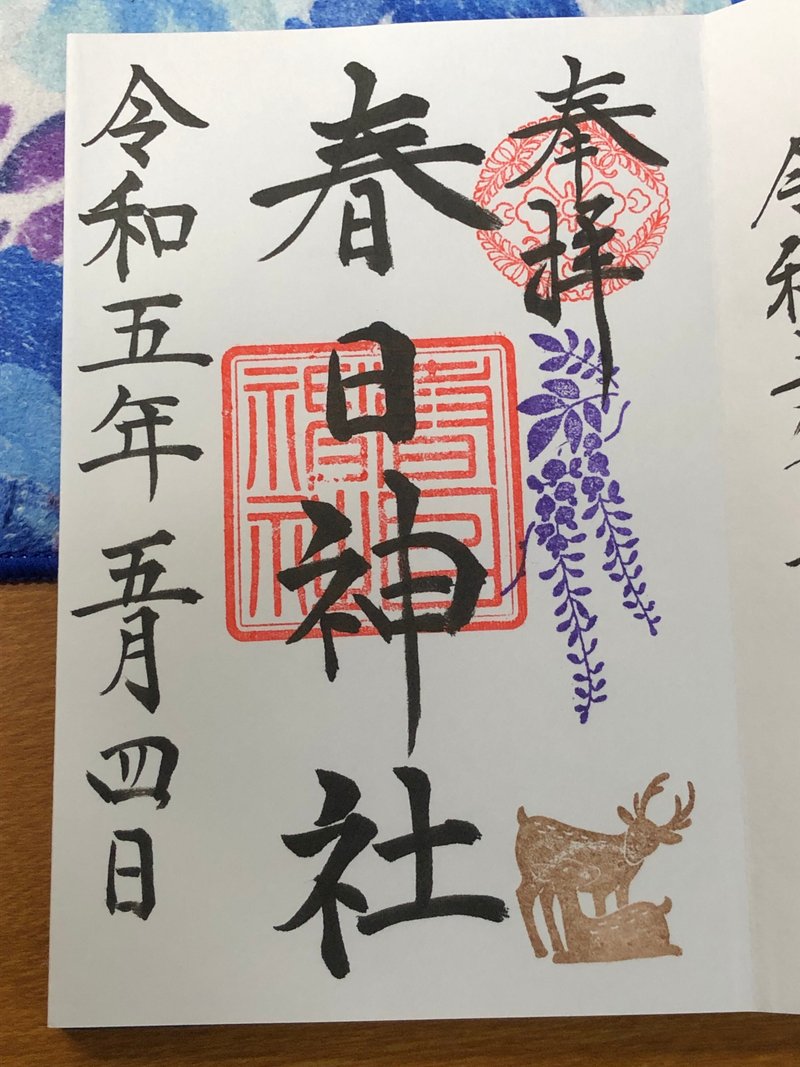 奉拝
春日神社
春日
神社
令和五年五月四日
令和